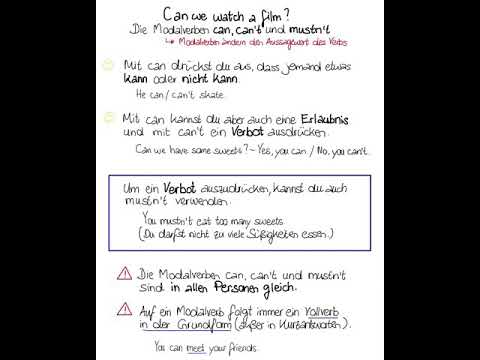 Can we watch a film?
Die Modalverben can, can't und mustn't
↳ Modalverben ändern den Aussagewert des Verbs
Mit can drückst du aus, dass jemand etwas
kann oder nicht kann.
He can / can't skate.
Mit can kannst du aber auch eine Erlaubnis
und mit can't ein Verbot ausdrücken.
Can we have some sweets? – Yes, you can / No, you can't.
Um ein Verbot auszudrücken, kannst du auch
mustn't verwenden.
You mustn't eat too many sweets.
(Du darfst nicht zu viele Süßigkeiten essen.)
Die Modalverben can, can't und mustn't
sind in allen Personen gleich.
Auf ein Modalverb folgt immer ein Vollverb
in der Grundform (außer in Kurzantworten).
You can meet your friends.